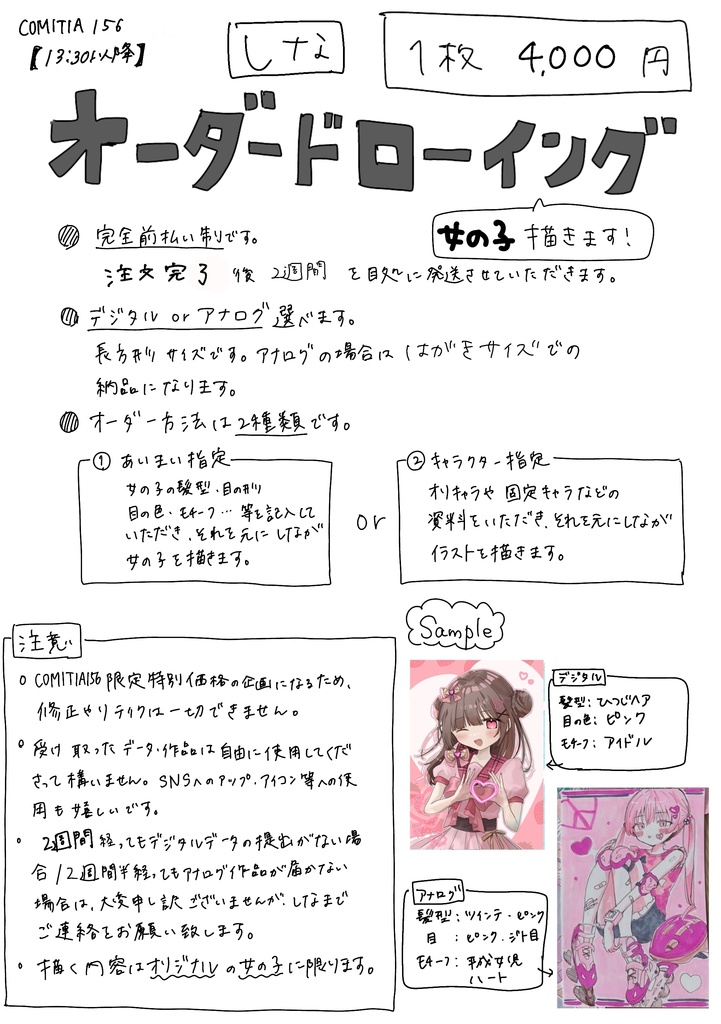 COMITIA 156
【13:30以降】
しナな
1枚 4,000 円
オーダードローイング
女の子 描きます!
完全前払い制です。
注文完了 後 2週間 を目処に発送させていただきます。
デジタル or アナログ 選べます。
長方形サイズです。アナログの場合ははがきサイズでの
納品になります。
オーダー方法は2種類です。
① あいまい指定
女の子の髪型・目の形
目の色・モチーフ…等を記入して
いただき、それを元にしなが
女の子を描きます。
or
② キャラクター指定
オリキャラや 固定キャラなどの
資料をいただき、それを元にしなが
イラストを描きます。
注意
COMITIA156限定特別価格の企画になるため、
修正やリテイクは一切できません。
受け取ったデータ・作品は自由に使用してくだ
さって構いません。SNSへのアップ・アイコン等への使
用も嬉しいです。
2週間経ってもデジタルデータの提出がない場
合/2週間半経ってもアナログ作品が届かない
場合は、大変申し訳ございませんが、しなまで
ご連絡をお願い致します。
描く内容はオリジナルの女の子に限ります。
Sample
デジタル
髪型: ひつじヘア
目の色: ピンク
モチーフ: アイドル
アナログ
髪型: ツインテ・ピンク
目 : ピンク・ジト目
モチーフ: 平成女児
ハート